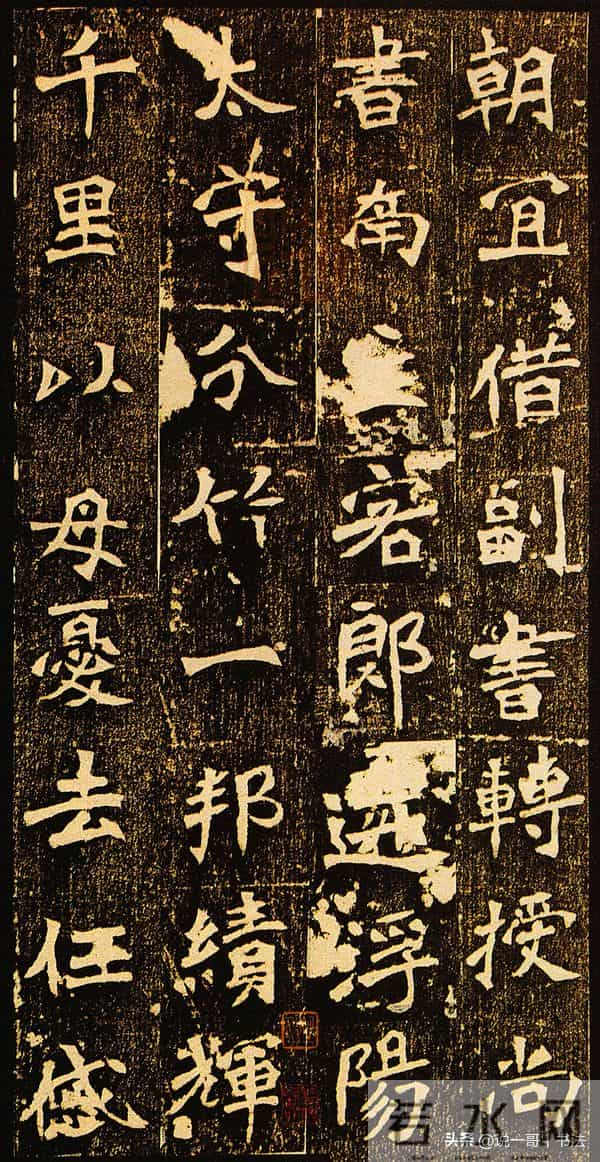 朝冝借副書轉授尚
書南主客郎遷浮陽
太守分竹一邦績輝
千里以母憂去任感
若水网
头条 @说一哥书法